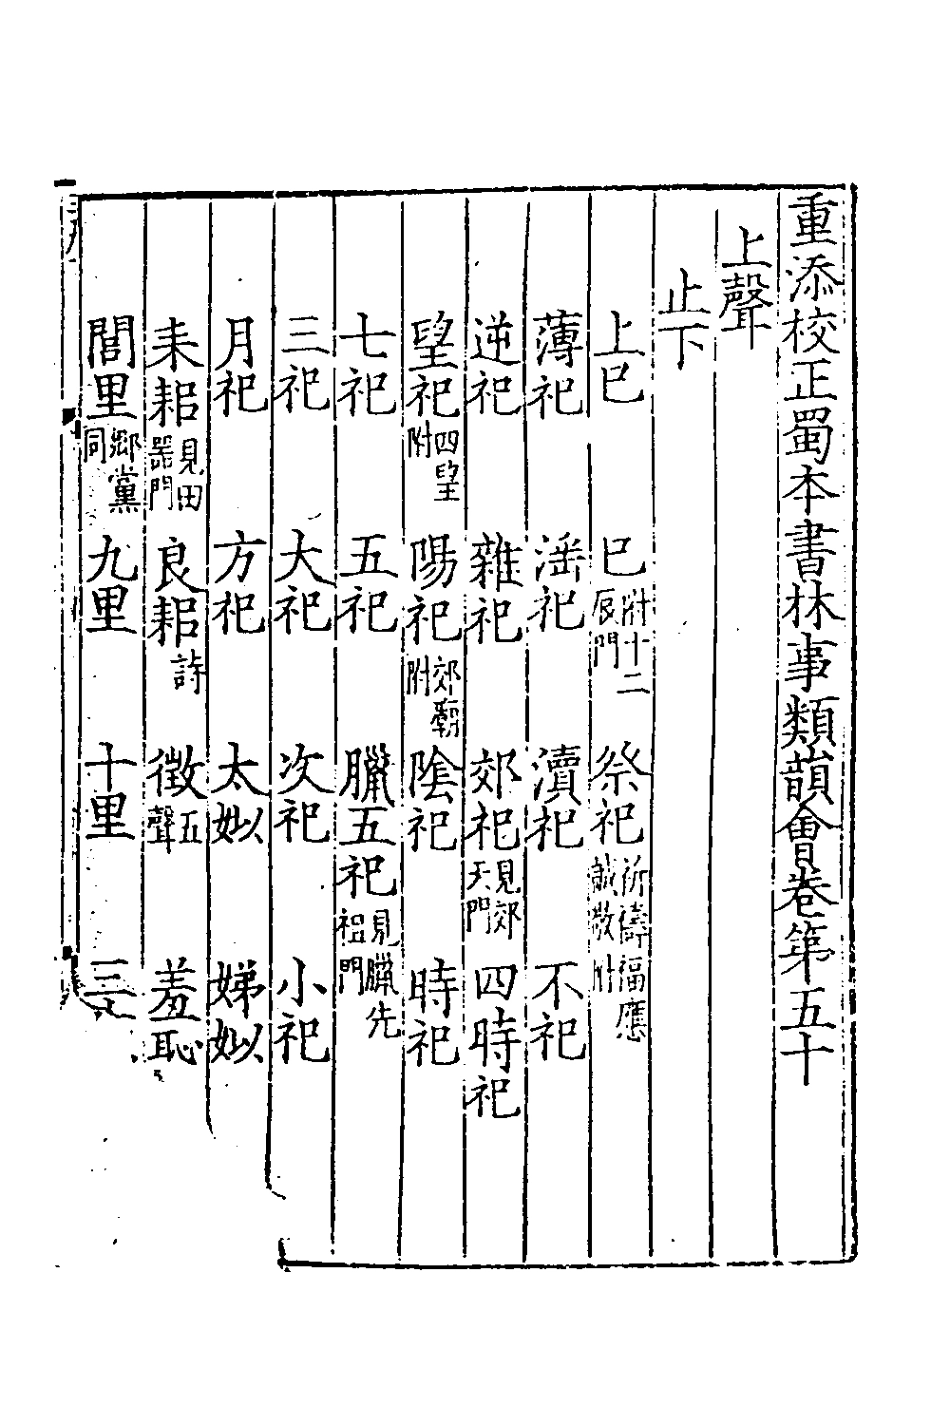 重添校正蜀本書林事類韻會卷第五十
上聲
止下
上巳 巳附十二辰門 祭祀祈禱福應誠敬附
薄祀 淫祀 瀆祀 不祀
逆祀 雜祀 郊祀見郊天門 四時祀
望祀四望附 陽祀郊霸附 陰祀 時祀
七祀 五祀 臘五祀見臘先祖門
三祀 大祀 次祀 小祀
月祀 方祀 太姒 娣姒
耒耜見田器門 良耜詩 徵五聲 羞恥
閭里鄉黨同 九里 十里 三